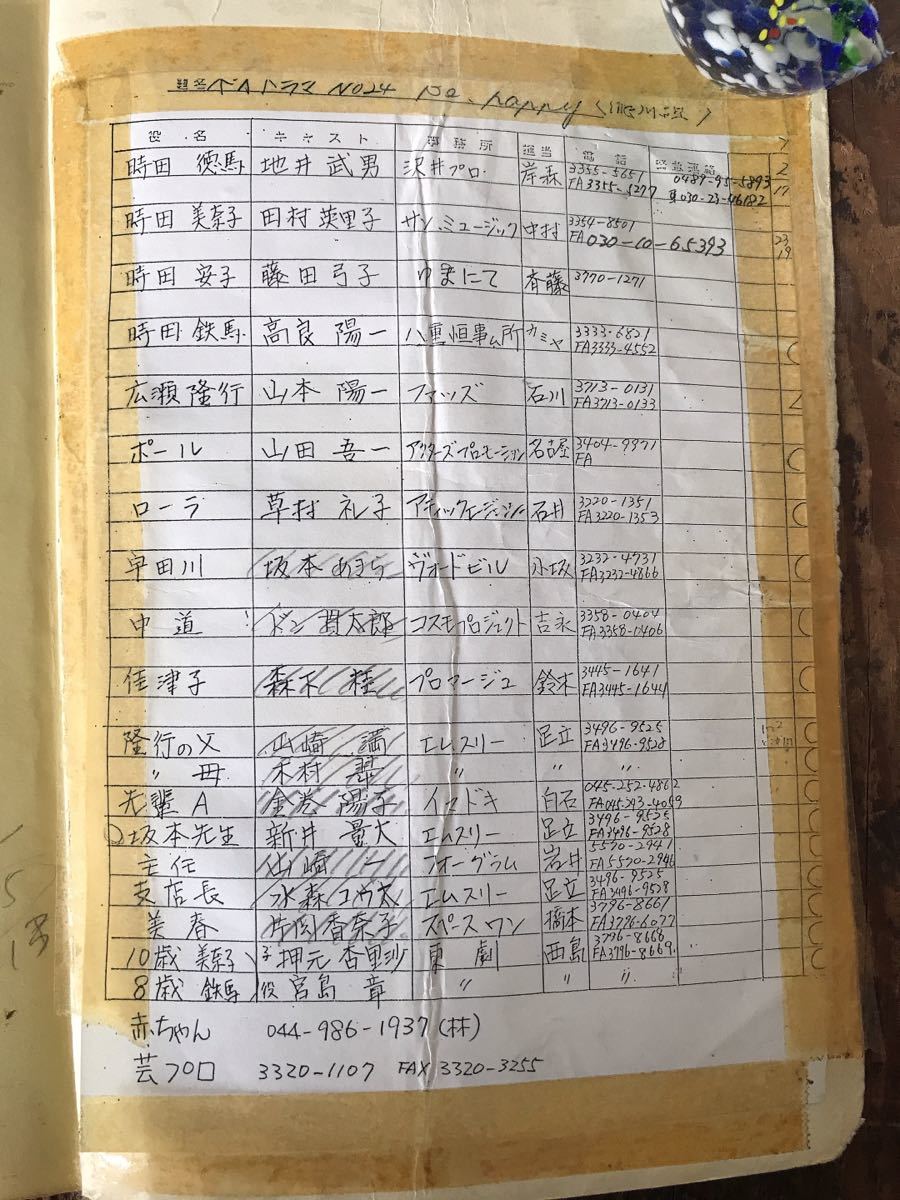 題名 ドラマ NO24 be. happy
役名 キャスト 事務所 担当 電話 緊急連絡
時田 徳馬 地井 武男 沢井プロ. 岸森 3355-5651 0489-95-5893
FA 3355-5277 030-23-46182
時田 美奈子 田村 英里子 サンミュージック 中村 3354-8501
FA 030-10-65393
時田 安子 藤田 弓子 ゆまにて 斉藤 3770-1271
時田 鉄馬 高良 陽一 八重垣事ム所 カミヤ 3333-6821
FA3333-4552
広瀬 隆行 山本 陽一 ファッズ 石川 3713-0131
FA3713-0133
ポール 山田 吾一 アクターズプロモーション 名古屋 3404-9971
FA
ローラ 草村 礼子 石井 3220-1351
FA3220-1353
早田川 坂本 あきら ヴォードビル 小坂 3232-4731
FA3232-4866
中道 ドン 貫太郎 コスモプロジェクト 吉永 3358-0404
FA3358-0406
佳津子 森下 桂 プロマージュ 鈴木 3445-1641
FA3445-1644
隆行の父 山崎 満 エムスリー 足立 3496-9525
FA3496-9528
〃 母 木村 翠 〃 〃 〃
先輩A 金巻 陽子 イマドキ 白石 045-252-4862
FA045-243-4059
坂本先生 新井 量大 エムスリー 足立 3496-9525
FA3496-9528
主任 山崎 一 フォーグラム 岩井 5570-2941
FA5570-2946
支店長 水森コウ太 エムスリー 足立 3496-9525
FA3496-9528
美春 片岡香奈子 スペースワン 橋本 3796-8661
FA3796-6077
10歳 美奈子 子 押元 杏里沙 東 劇 西島 3796-8668
FA3796-8669
8歳 鉄馬 役 宮島 章 〃 〃 〃
赤ちゃん 044-986-1937(林)
芸プロ 3320-1107 FAX 3320-3255